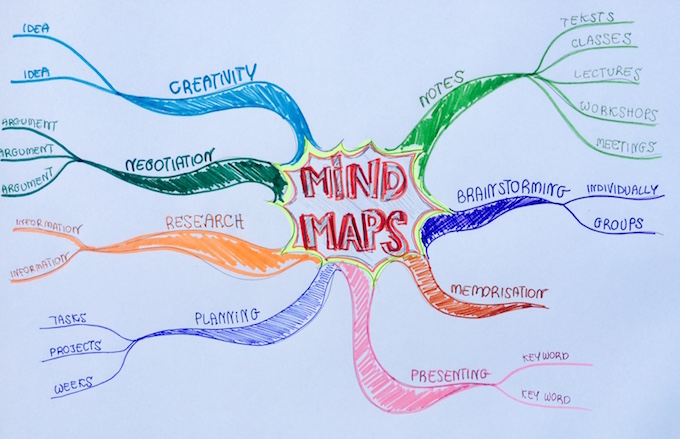 MIND
MAPS
CREATIVITY
IDEA
IDEA
NEGOTIATION
ARGUMENT
ARGUMENT
ARGUMENT
RESEARCH
INFORMATION
INFORMATION
PLANNING
TASKS
PROJECTS
WEEKS
NOTES
TEKSTS
CLASSES
LECTURES
WORKSHOPS
MEETINGS
BRAINSTORMING
INDIVIDUALLY
GROUPS
MEMORISATION
PRESENTING
KEYWORD
KEY WORD